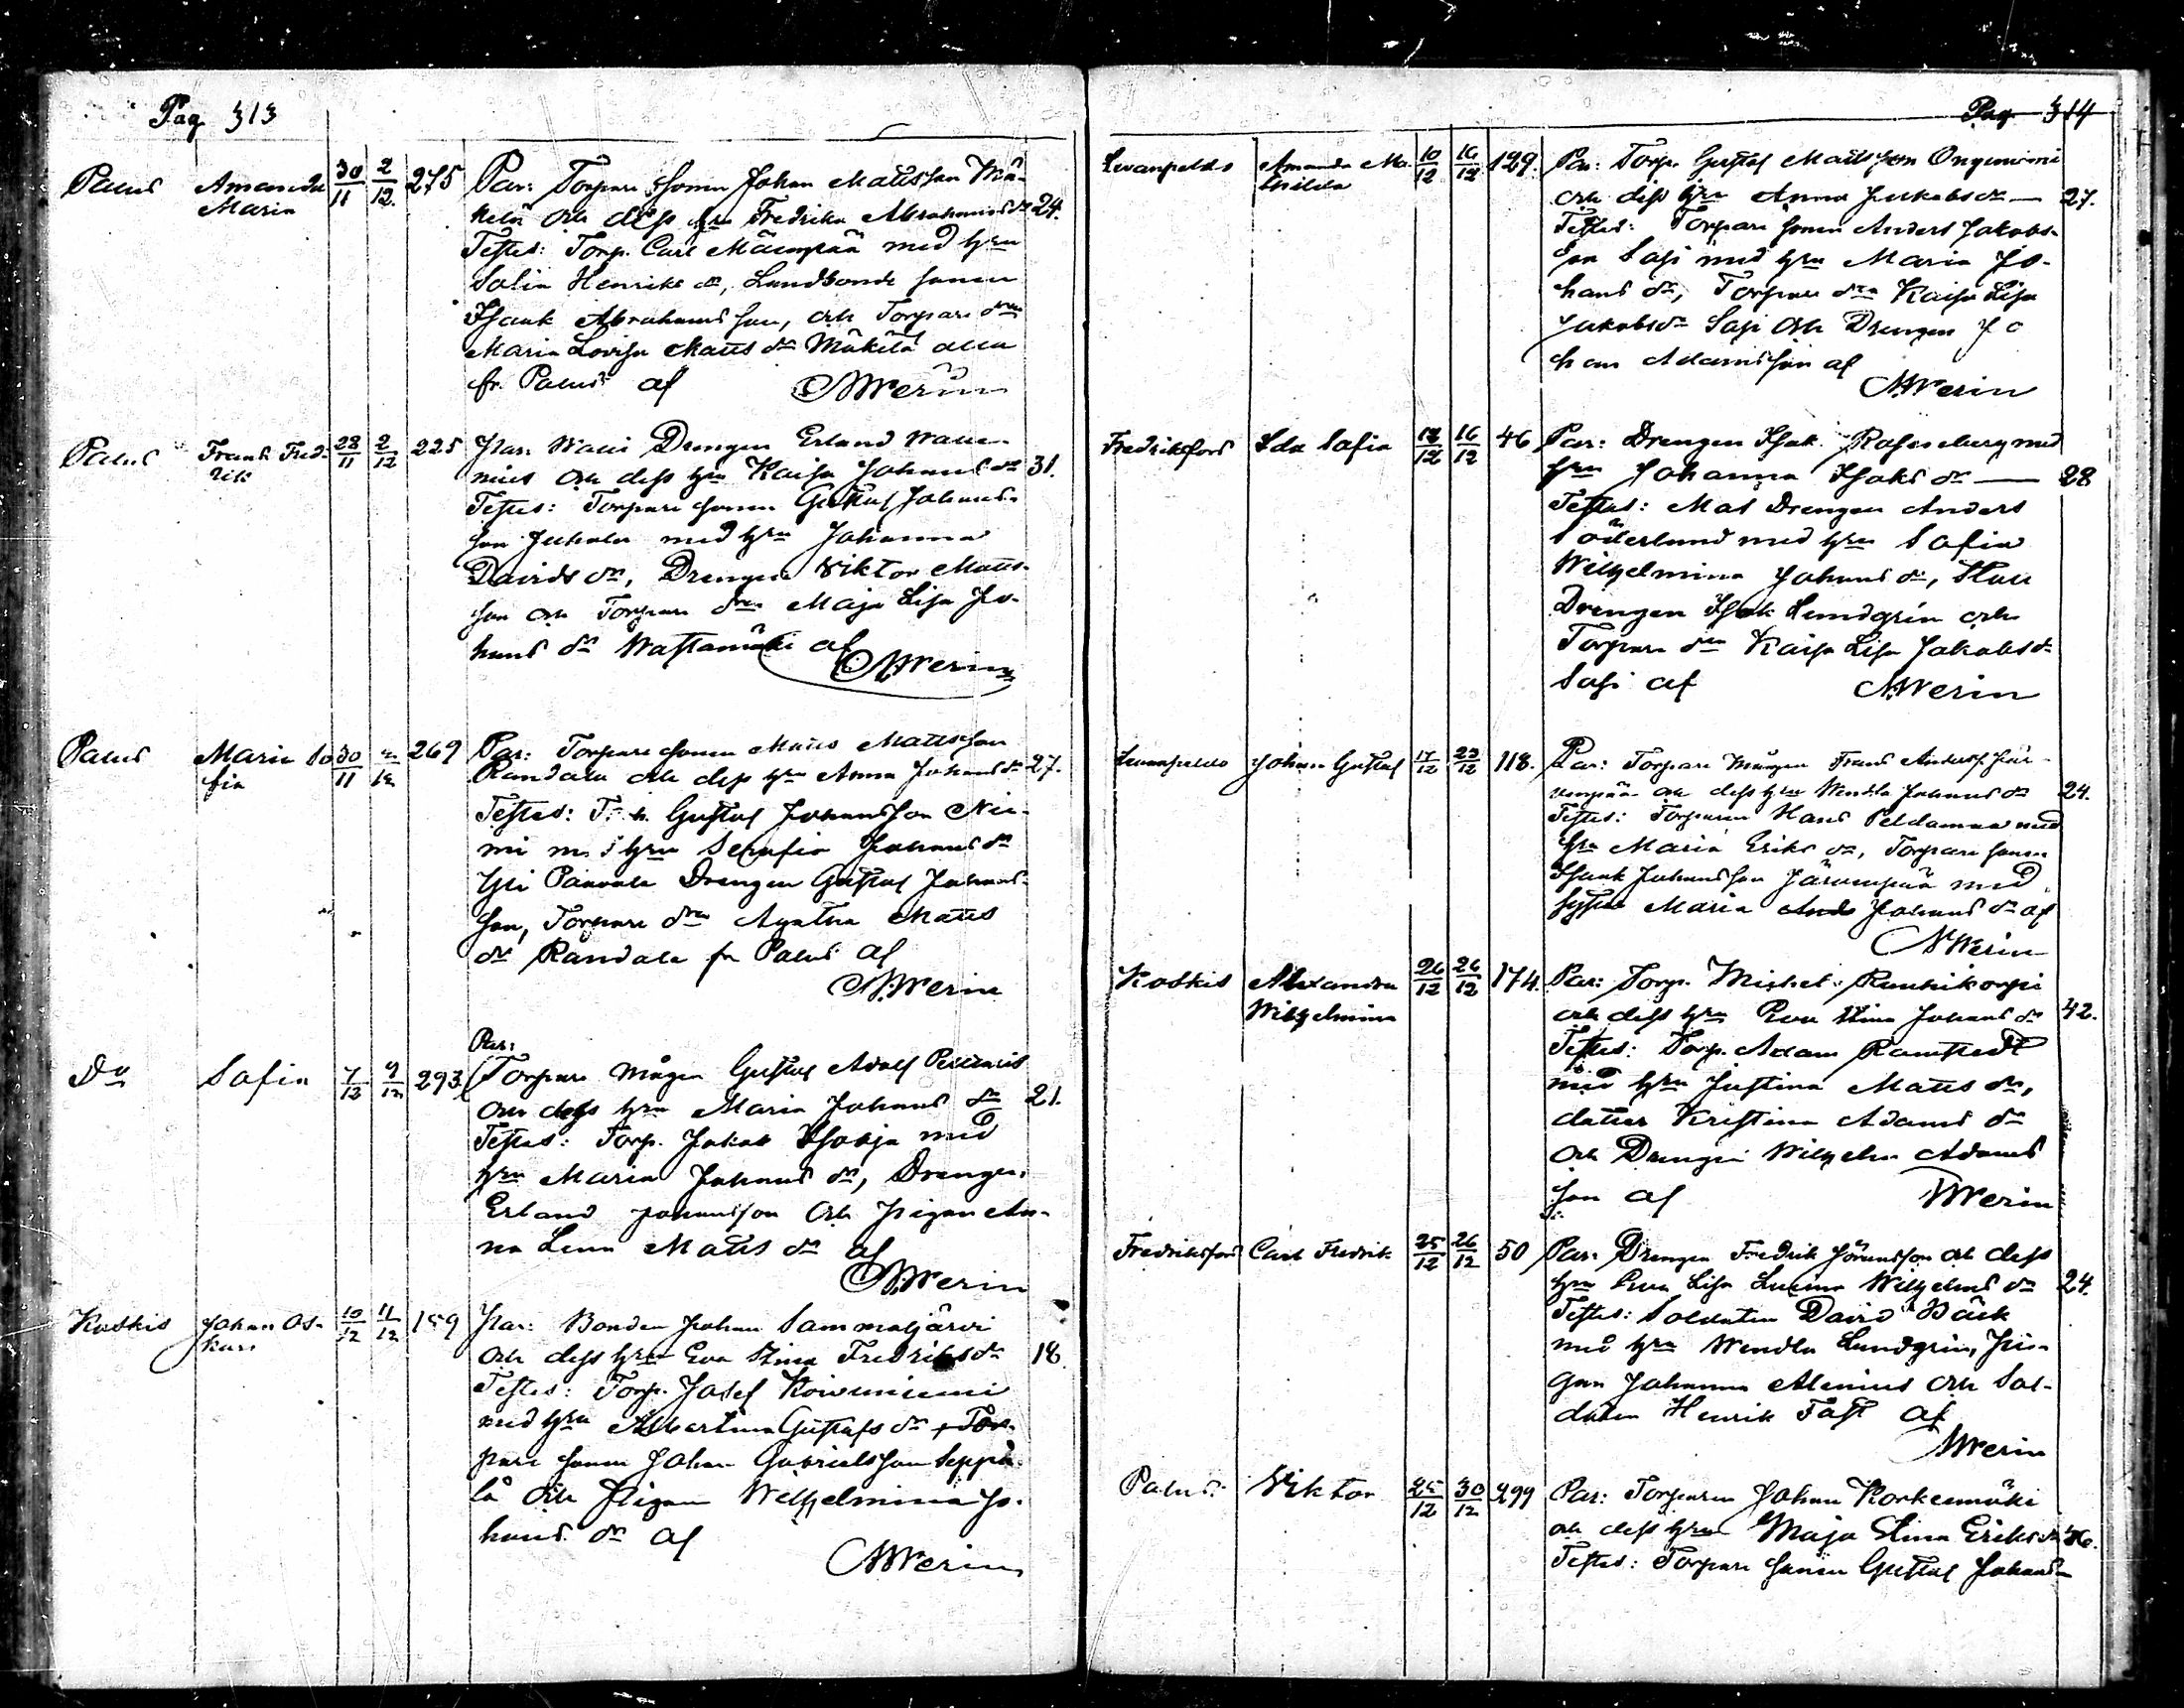 Pag 313
Palus Amanda Maria 30/11 2/12. 275 Par: Torpare sonen Johan Mattsson Mä-
kelä och dess hru Fredrika Abrahams dr 24.
Testes: Torp. Carl Mäenpää med hru
Salin Henriks dr, Landbonde sonen
Isaak Abrahamsson, och Torpare drn
Maria Lovisa Matts dr Mäkelä alla
fr. Palus af NWerin
Palus Frans Fred-
rik 28/11 2/12 225 Par. Drengen Erland
nius och dess hru Kaisa Johans dr 31.
Testes: Torpare sonen Gustaf Johans-
son med hru Johanna
Davids dr, Drengen Viktor Matts-
son och Torpare drn Maja Lisa Jo-
hans dr Wastamäki af
NWerin
Palus Maria So-
fia 30/11 2/12 269 Par: Torpare sonen Matts Mattsson
Randala och dess hru Anna Johans dr 27.
Testes: T. h. Gustaf Johansson Nie-
mi m. hru Serafia Johans dr
Yli Drengen Gustaf Johans-
son, Torpare drn Agatha Matts
dr Randala fr Palus af
NWerin
Do Sofia 7/12 9/12 293 Par:
Torpare mågen Gustaf Adolf
och dess hru Maria Johans dr 21.
Testes: Torp. Jakob med
hru Maria Johans dr, Drengen
Erland Johansson och pigan An-
na Lena Matts dr af
NWerin
Koskis Johan Os-
kar 10/12 11/12 159 Par: Bonden Johan Sammaljärvi
och dess hru Eva Stina Fredriks dr 18.
Testes: Torp. Josef Koivuniemi
med hru Albertina Gustafs dr + Tor-
pare sonen Johan Gabrielsson Seppä-
lä och Pigan Wilhelmina Jo-
hans dr af
NWerin
Pag 314
Levanpelto Amanda Ma-
thilda 10/12 16/12 129. Par: Torp. Gustaf Mattsson Ongenniemi
och dess hru Anna Jakobs dr — 27.
Testes: Torpare sonen Anders Jakobs-
son Sasi med hru Maria Jo-
hans dr, Torpare drn Kaisa Lisa
Jakobs dr Sasi och Drengen Jo
han Adamsson af
NWerin
Fredriksfors Ida Sofia 12/12 16/12 46 Par: Drengen Isak Rosenberg med
hru Johanna Isaks dr — 28
Testes: Mas Drengen Anders
Söderlund med hru Sofia
Wilhelmina Johans dr, Stall
Drengen Isak Lundgrén och
Torpare drn Kaisa Lisa Jakobs dr
Sasi af NWerin
Levanpelto Johan Gustaf 17/12 23/12 118. Par: Torpare mågen Frans Anderss. Jär-
venpää och dess hru Wendla Johans dr 24.
Testes: Torparen Hans Peldamaa med
hru Maria Eriks dr, Torpare sonen
Isaak Johansson Järvenpää med
syster Maria Johans dr af
NWerin
Koskis Alexandra
Wilhelmina 26/12 26/12 174. Par: Torp. Michel Raunikorpi
och dess hru Eva Stina Johans dr 42.
Testes: Torp. Adam Ramstedt
med hru Justina Matts dr,
dotter Kristina Adams dr
och Drengen Wilhelm Adams
son af NWerin
Fredriksfors Carl Fredrik 25/12 26/12 50 Par: Drengen Fredrik Göransson och dess
hru Eva Lisa Lusina Wilhelms dr 24.
Testes: Soldaten David Bäck
med hru Wendla Lundgrén, Pi-
gan Johanna Alenius och Sol-
daten Henrik Fast af
NWerin
Palus: Viktor 25/12 30/12 299 Par: Torparen Johan Korkeemäki
och dess hru Maja Stina Eriks dr 46.
Testes: Torpare sonen Gustaf Johans-